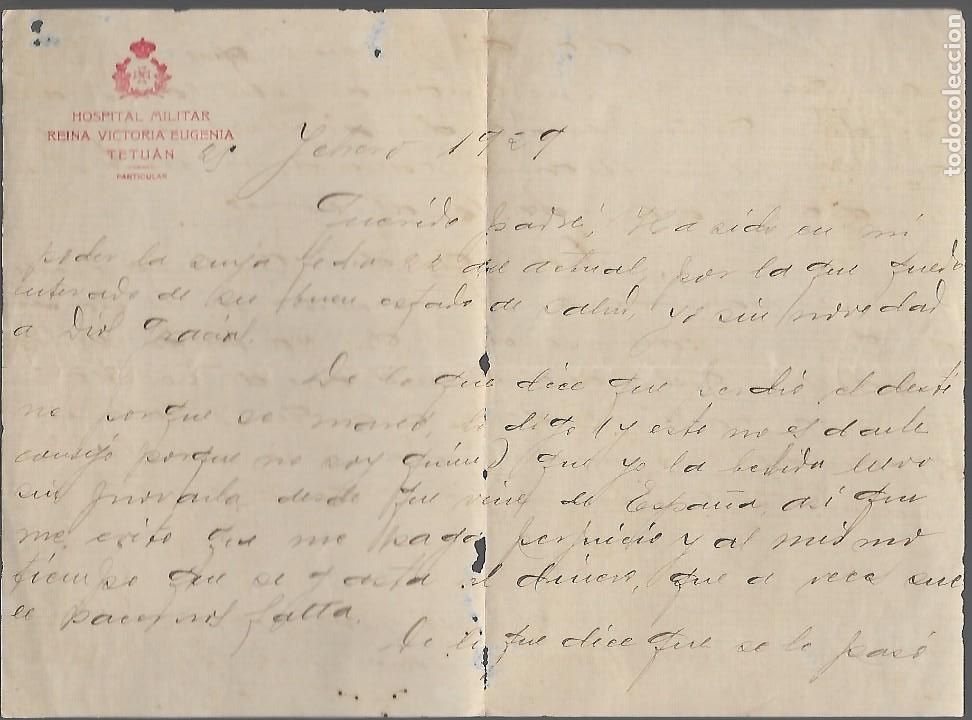 HOSPITAL MILITAR
REINA VICTORIA EUGENIA
TETUÁN
PARTICULAR
Febrero 1929
Querido padre, Ha sido en mi
poder la suya fecha 22 del actual, por la que quedo
enterado de su buen estado de salud, yo sin novedad
a Dios Gracias.
De lo que dice que perdio el desti
no porque se mareó, le digo (y esto no es darle
consejo porque no soy quien) que yo la bebida llevo
sin provarla desde que vine de España, asi que
me evito que me haga perjuicio y al mismo
tiempo que se gasta el dinero, que a veces sue
le hacernos falta.
De lo que dice que se le pasó
todocoleccion.net